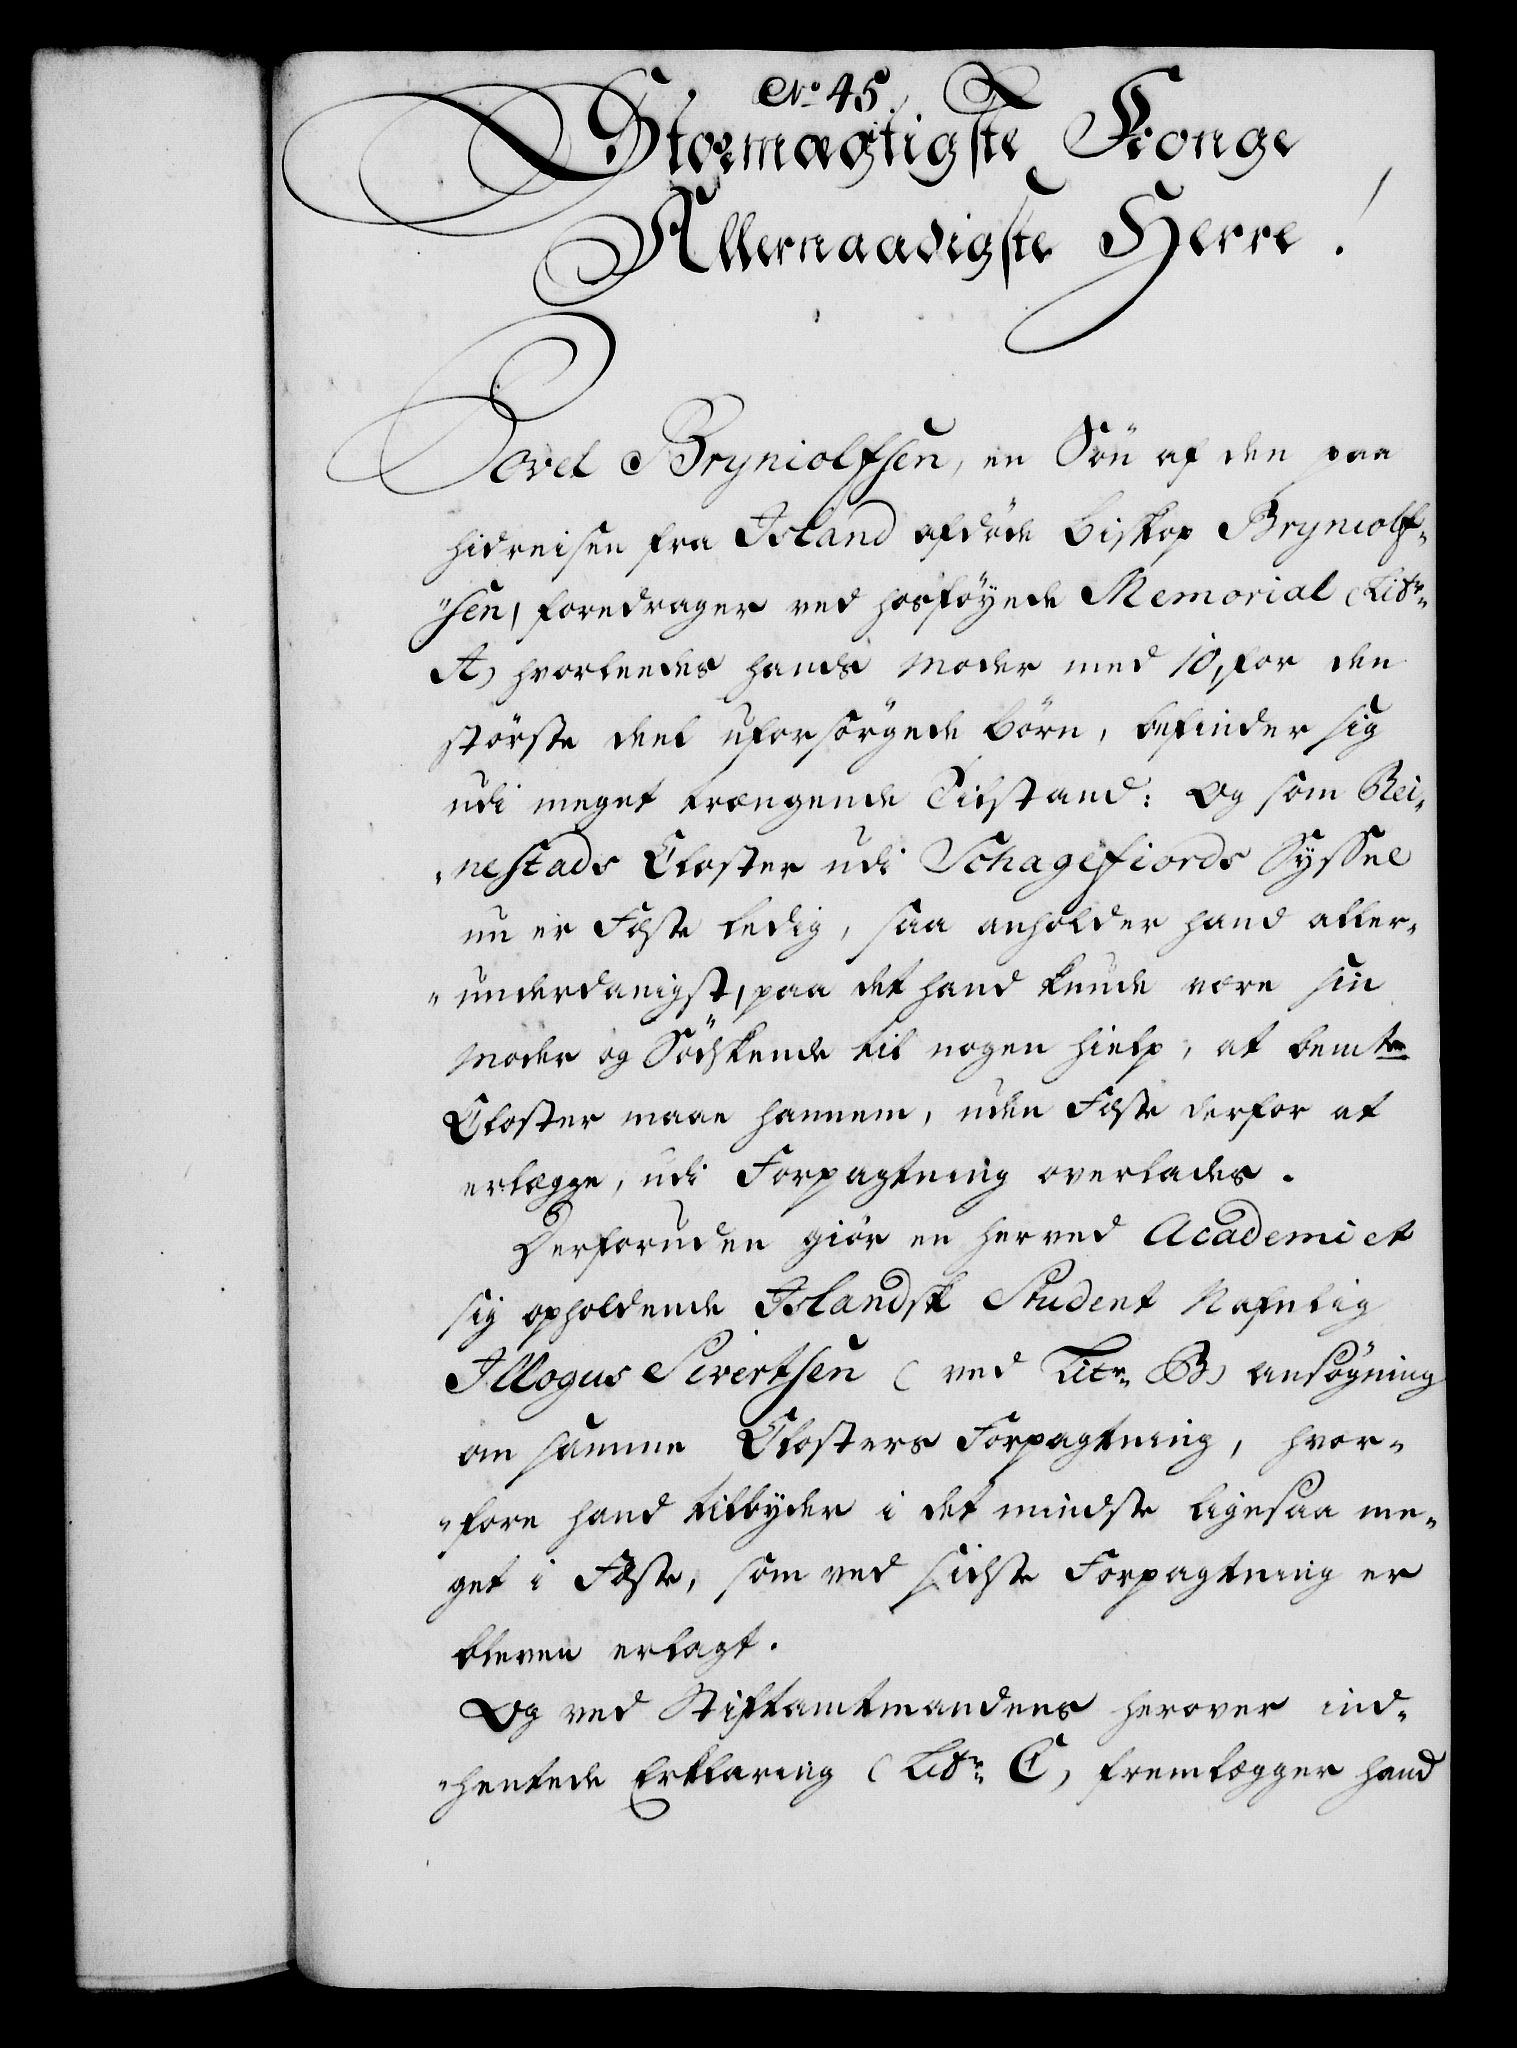 No. 45.
Stormægtigste Konge
Allernaadigste Herre!
Povel Bryniolfsen, en Søn af den paa
hidreisen fra Island afdøde Biskop Bryniolf-
"sen, foredrager ved hosføyede Memorial (Litr.
A) hvorledes hands Moder med 10, for den
største deel uforsørgede børn, befinder sig
udi meget trængende Tilstand: Og som Rei-
"nestads Closter udi Schagefiords Syssel
nu er Fæste ledig, saa anholder hand aller-
"underdanigst, paa det hand kunde være sin
Moder og Sødskende til nogen hielp, at bemte
Closter maae hannem, uden Fæste derfor at
erlægge, udi Forpagtning overlades.
Derforuden giør en her ved Academiet
sig opholdende Islandsk Student Nafnlig
Illogus Sivertsen (ved Litr. B) ansøgning
om samme Closters Forpagtning, hvor-
"fore hand tilbyder i det mindste ligesaa me-
get i Fæste, som ved sidste Forpagtning er
bleven erlagt.
Og ved Stiftamtmandens herover ind-
"hentede Erklæring (Litr. C) fremlægger hand